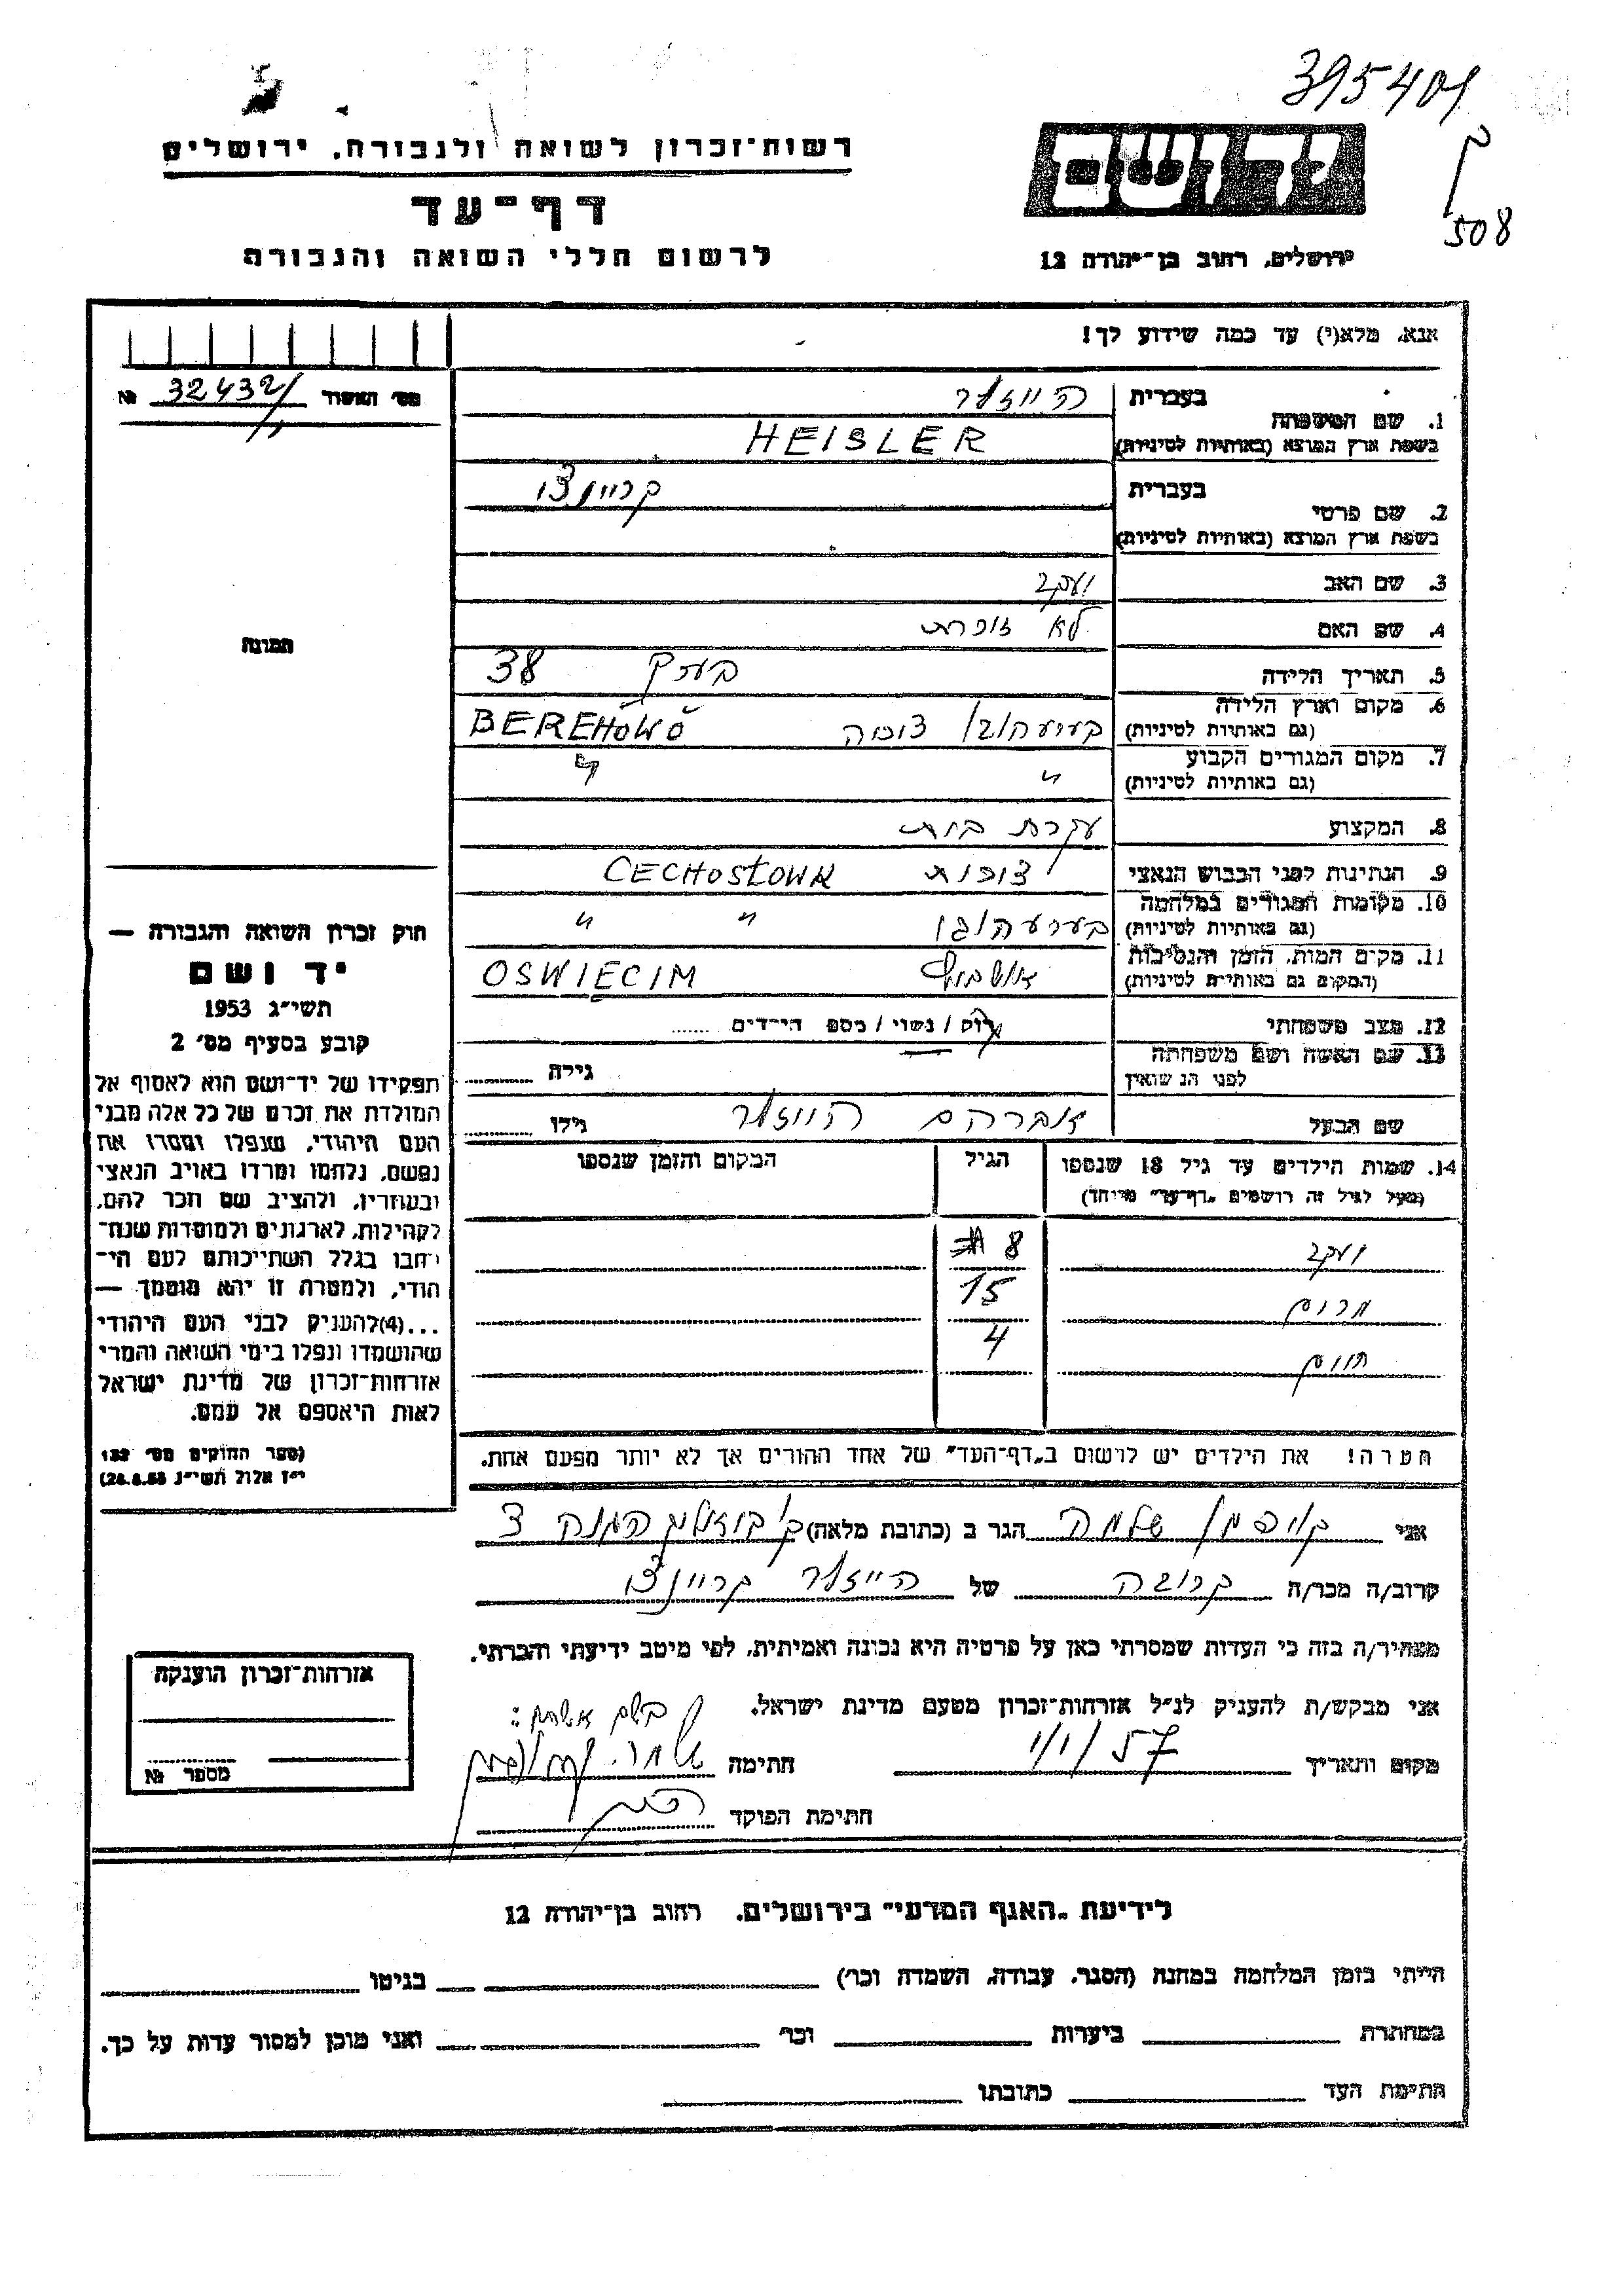 395404
508
יד ושם
ירושלים, רחוב בן־יהודה 12
רשות־זכרון לשואה ולגבורה, ירושלים
דף־עד
לרשום חללי השואה והגבורה
אנא, מלא(י) עד כמה שידוע לך!
מס׳ האשור 32432 №
1. שם המשפחה
בעברית הייזלר
בשפת ארץ המוצא (באותיות לטיניות) HEISLER
2. שם פרטי
בעברית קריינצו
בשפת ארץ המוצא (באותיות לטיניות)
3. שם האב יעקב
4. שם האם לא זוכרת
5. תאריך הלידה בערך 38
6. מקום וארץ הלידה
(גם באותיות לטיניות) צ׳כיה BEREHOWO
7. מקום המגורים הקבוע
(גם באותיות לטיניות) " "
8. המקצוע עקרת בית
9. הנתינות לפני הכבוש הנאצי צ׳כית CECHOSŁOWAK
10. מקומות המגורים במלחמה
(גם באותיות לטיניות) " "
11. מקום המות, הזמן והנסיבות
(המקום גם באותיות לטיניות) אושביץ OSWIĘCIM
12. מצב משפחתי רוק / נשוי / מספ הילדים ......
13. שם האשה ושם משפחתה
לפני הנישואין גילה
שם הבעל אברהם הייזלר גילו
14. שמות הילדים עד גיל 18 שנספו הגיל המקום והזמן שנספו
(מעל לגיל זה רושמים „דף־עד" מיוחד)
יעקב 8
מרים 15
חיים 4
הערה! את הילדים יש לרשום ב„דף־העד" של אחד ההורים אך לא יותר מפעם אחת.
תמונה
חוק זכרון השואה והגבורה —
יד ושם
תשי״ג 1953
קובע בסעיף מס׳ 2
תפקידו של יד־ושם הוא לאסוף אל
המולדת את זכרם של כל אלה מבני
העם היהודי, שנפלו ומסרו את
נפשם, נלחמו ומרדו באויב הנאצי
ובעוזריו, ולהציב שם וזכר להם,
לקהילות, לארגונים ולמוסדות שנח־
רבו בגלל השתייכותם לעם הי־
הודי, ולמטרה זו יהא מוסמך —
...(4) להעניק לבני העם היהודי
שהושמדו ונפלו בימי השואה והמרי
אזרחות־זכרון של מדינת ישראל
לאות היאספם אל עמם.
(ספר החוקים מס׳ 132
י״ז אלול תשי״ג 28.8.53)
אני קויפמן שלמה הגר ב (כתובת מלאה)
קרוב/ה מכר/ה קרובה של הייזלר קריינצו
מצהיר/ה בזה כי העדות שמסרתי כאן על פרטיה היא נכונה ואמיתית, לפי מיטב ידיעתי והכרתי.
אני מבקש/ת להעניק לנ״ל אזרחות־זכרון מטעם מדינת ישראל.
בשם אשתו:
מקום ותאריך 1/1/57 חתימה
חתימת הפוקד
אזרחות־זכרון הוענקה
מספר №
לידיעת „האגף המדעי" בירושלים, רחוב בן־יהודה 12
הייתי בזמן המלחמה במחנה (הסגר, עבודה, השמדה וכו׳) בגיטו
במחתרת ביערות וכו׳ ואני מוכן למסור עדות על כך.
חתימת העד כתובתו